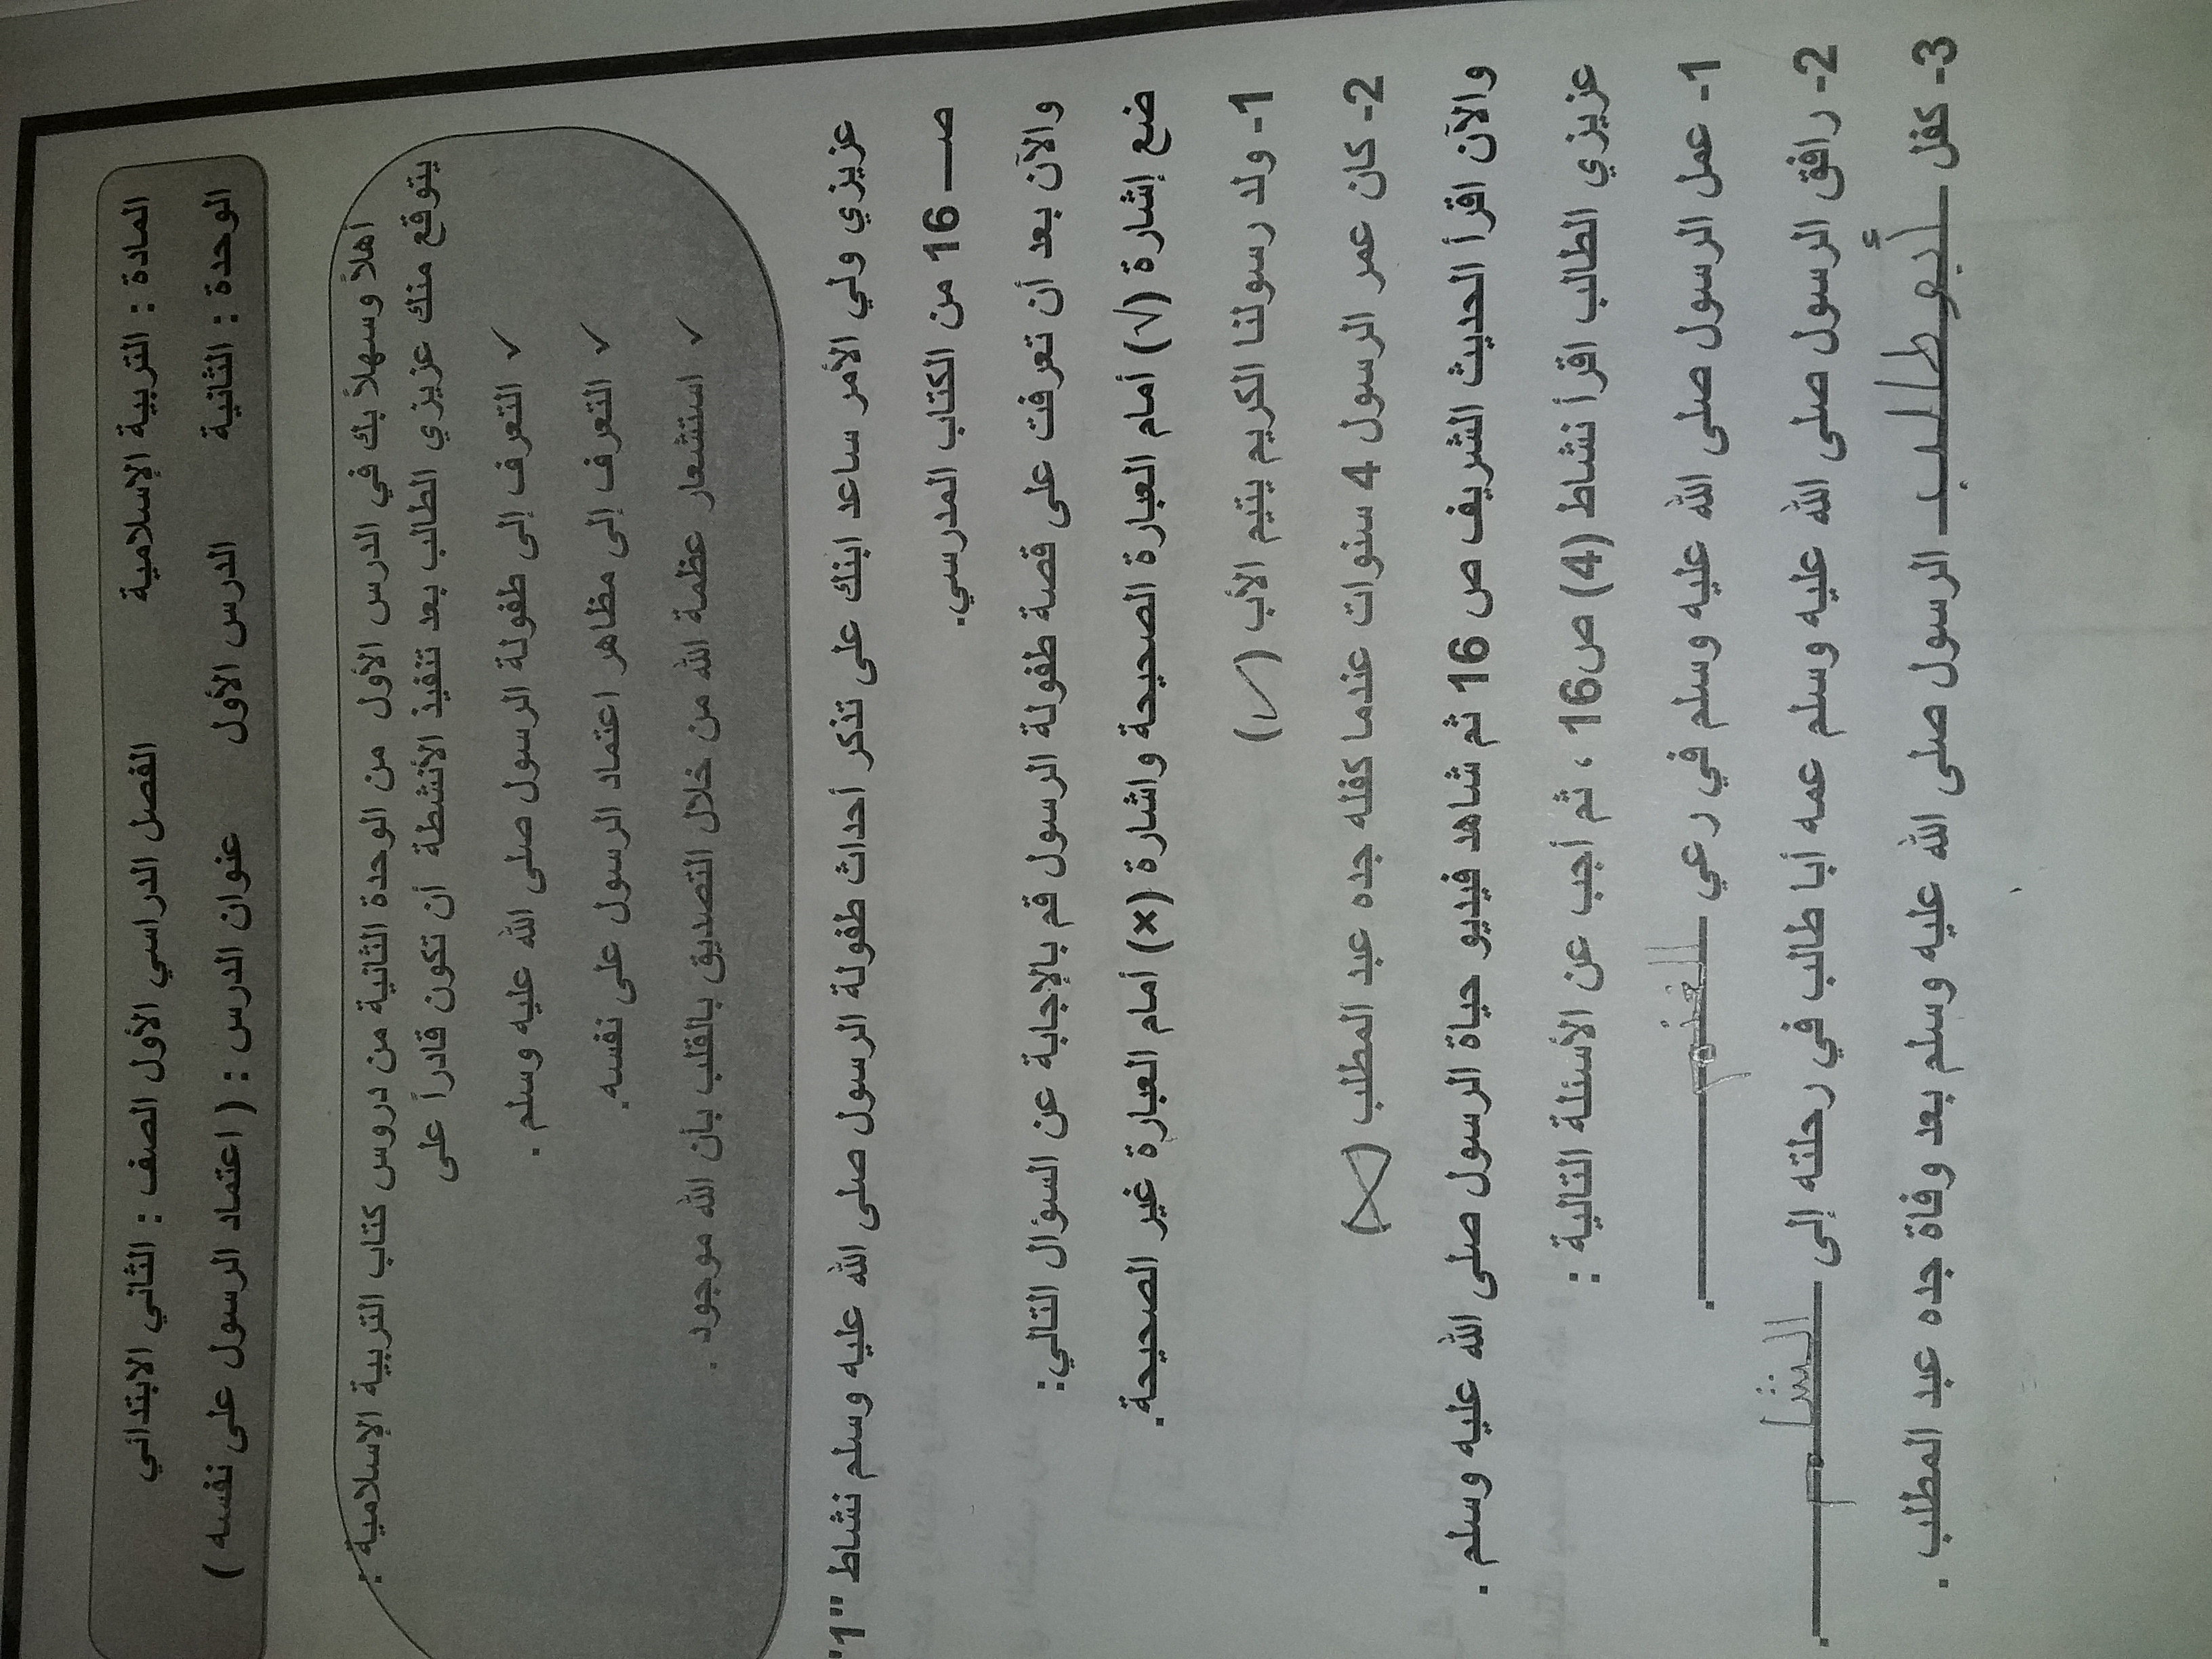 المادة : التربية الإسلامية الفصل الدراسي الأول الصف : الثاني الابتدائي
الوحدة : الثانية الدرس الأول عنوان الدرس : ( اعتماد الرسول على نفسه )
أهلاً وسهلاً بك في الدرس الأول من الوحدة الثانية من دروس كتاب التربية الإسلامية :
يتوقع منك عزيزي الطالب بعد تنفيذ الأنشطة أن تكون قادراً على
✓ التعرف إلى طفولة الرسول صلى الله عليه وسلم .
✓ التعرف إلى مظاهر اعتماد الرسول على نفسه.
✓ استشعار عظمة الله من خلال التصديق بالقلب بأن الله موجود .
عزيزي ولي الأمر ساعد ابنك على تذكر أحداث طفولة الرسول صلى الله عليه وسلم نشاط "1"
صـــ 16 من الكتاب المدرسي.
والآن بعد أن تعرفت على قصة طفولة الرسول قم بالإجابة عن السؤال التالي:
ضع إشارة (√) أمام العبارة الصحيحة واشارة (×) أمام العبارة غير الصحيحة.
1- ولد رسولنا الكريم يتيم الأب (✓)
2- كان عمر الرسول 4 سنوات عندما كفله جده عبد المطلب (×)
والآن اقرأ الحديث الشريف ص 16 ثم شاهد فيديو حياة الرسول صلى الله عليه وسلم .
عزيزي الطالب اقرأ نشاط (4) ص16 ، ثم أجب عن الأسئلة التالية :
1- عمل الرسول صلى الله عليه وسلم في رعي الغنم.
2- رافق الرسول صلى الله عليه وسلم عمه أبا طالب في رحلته إلى الشام.
3- كفل أبو طالب الرسول صلى الله عليه وسلم بعد وفاة جده عبد المطلب .